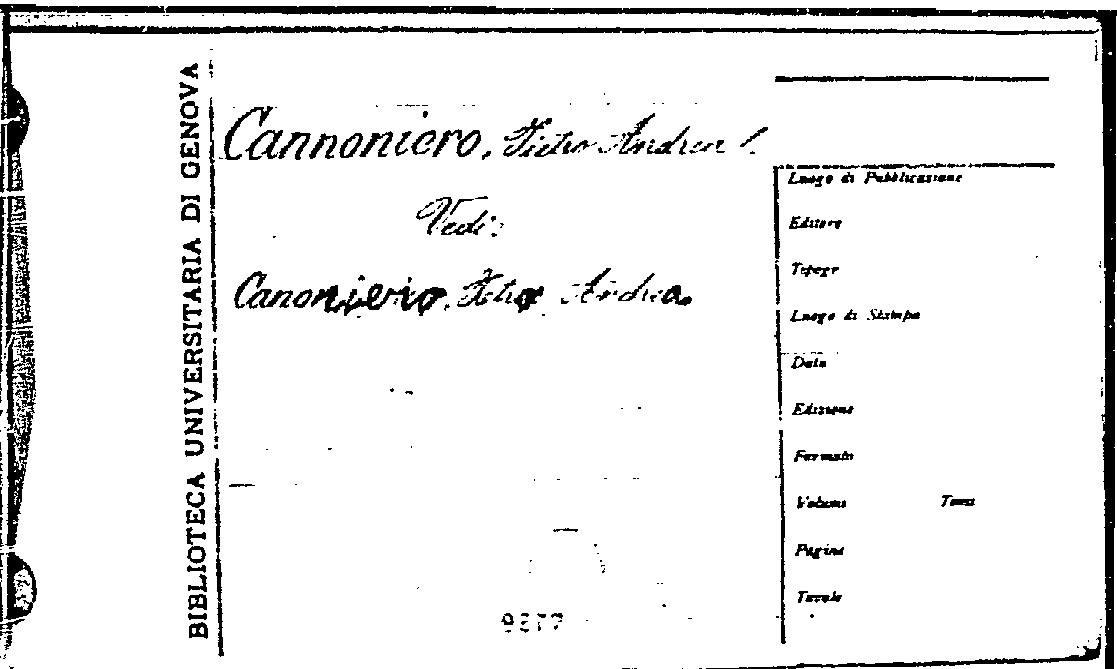 BIBLIOTECA UNIVERSITARIA DI GENOVA
Cannoniero, Pietro Andrea
Vedi:
Canoniero, Pietro Andrea
Luogo di Pubblicazione
Editore
Tipogr
Luogo di Stampa
Data
Edizione
Formato
Volume Tomo
Pagine
Tavole